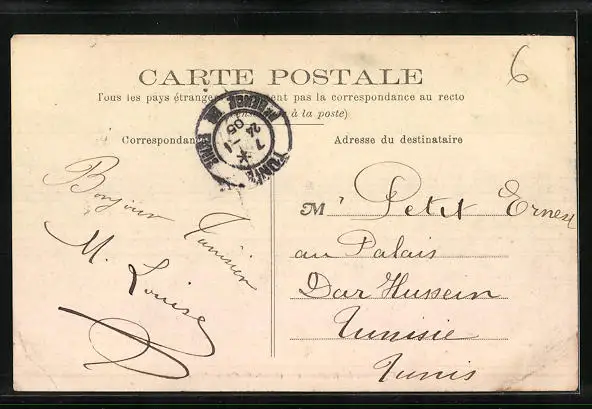 6
CARTE POSTALE
Tous les pays étrangers pas la correspondance au recto
à la poste)
Correspondance
Adresse du destinataire
7 - 1
24
05
Bonjour Tunisien
M. Louise
Mr Petit Ernest
au Palais
Dar Hussein
Tunisie
Tunis